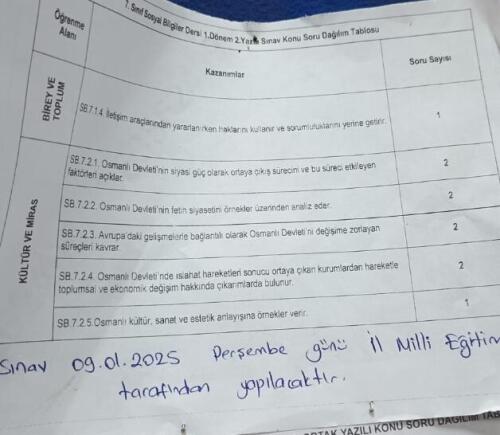 7. Sınıf Sosyal Bilgiler Dersi 1.Dönem 2.Yazılı Sınav Konu Soru Dağılım Tablosu
Öğrenme
Alanı
Kazanımlar
Soru Sayısı
BİREY VE
TOPLUM
SB.7.1.4. İletişim araçlarından yararlanırken haklarını kullanır ve sorumluluklarını yerine getirir.
1
KÜLTÜR VE MİRAS
SB.7.2.1. Osmanlı Devleti'nin siyasi güç olarak ortaya çıkış sürecini ve bu süreci etkileyen
faktörleri açıklar.
2
SB.7.2.2. Osmanlı Devleti'nin fetih siyasetini örnekler üzerinden analiz eder.
2
SB.7.2.3. Avrupa'daki gelişmelerle bağlantılı olarak Osmanlı Devleti'ni değişime zorlayan
süreçleri kavrar.
2
SB.7.2.4. Osmanlı Devleti'nde ıslahat hareketleri sonucu ortaya çıkan kurumlardan hareketle
toplumsal ve ekonomik değişim hakkında çıkarımlarda bulunur.
2
SB.7.2.5.Osmanlı kültür, sanat ve estetik anlayışına örnekler verir.
1
Sınav 09.01.2025 Perşembe günü İl Milli Eğitim
tarafından yapılacaktır.
ORTAK YAZILI KONU SORU DAĞILIM TAB